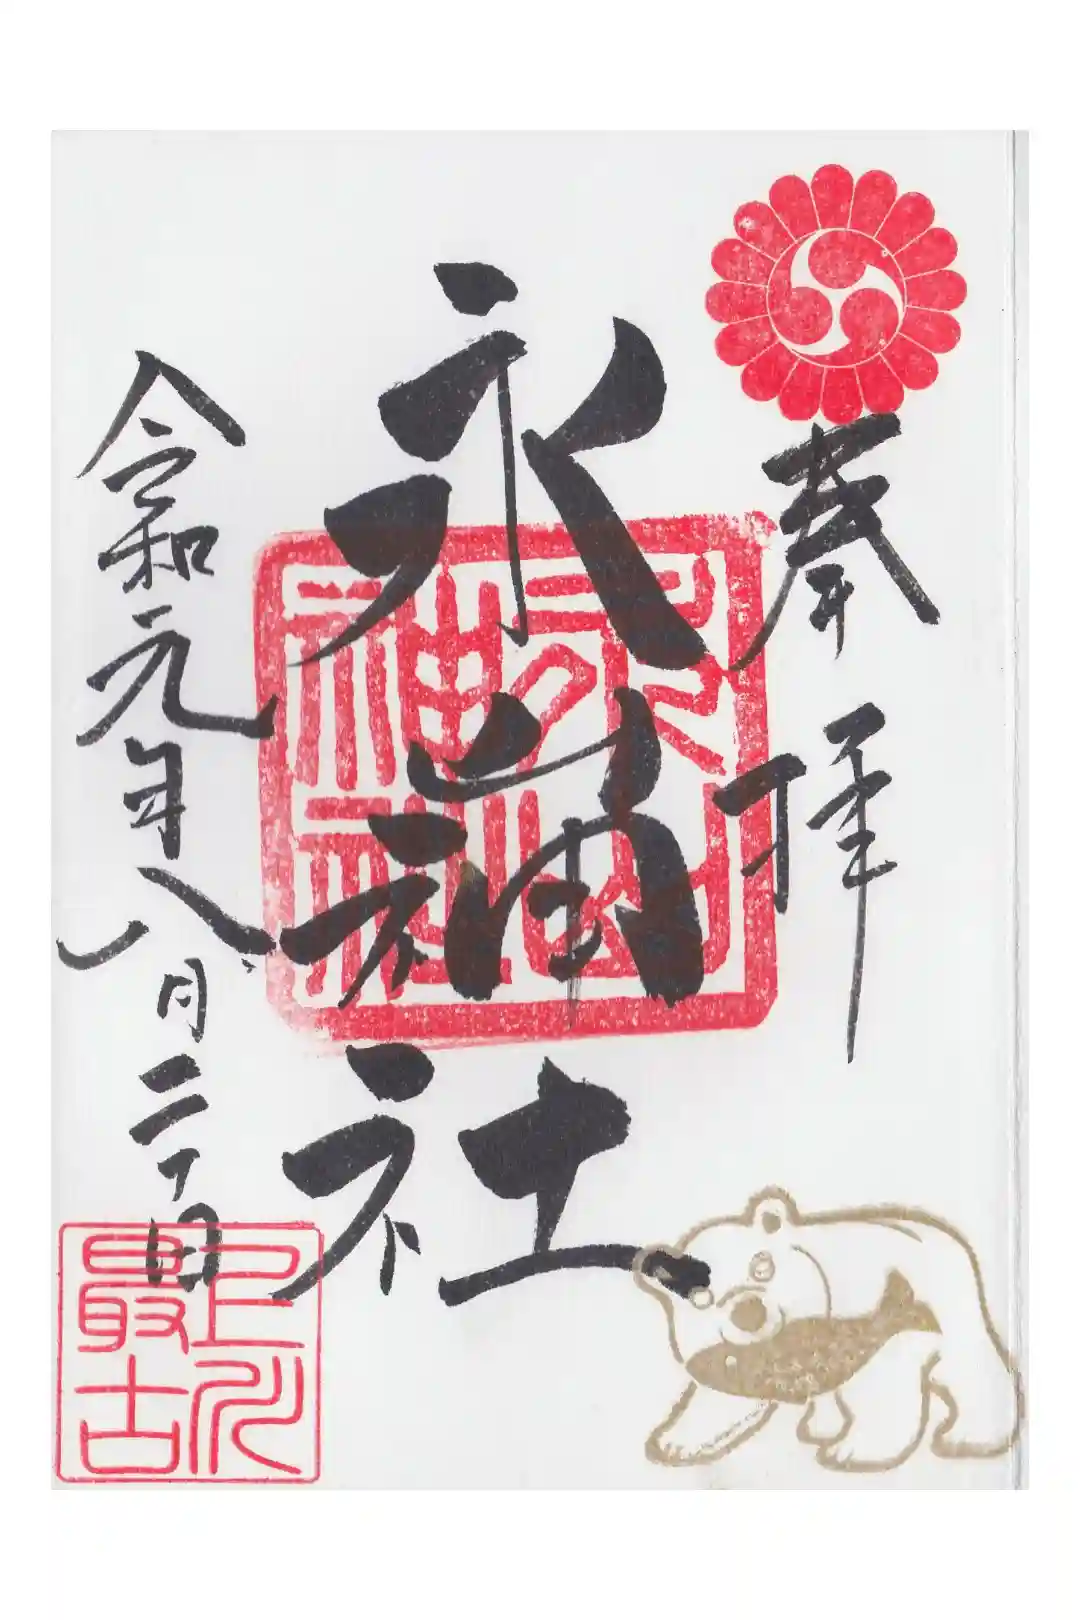 奉拝
永山神社
令和元年八月二十日
永山神社
旭川最古